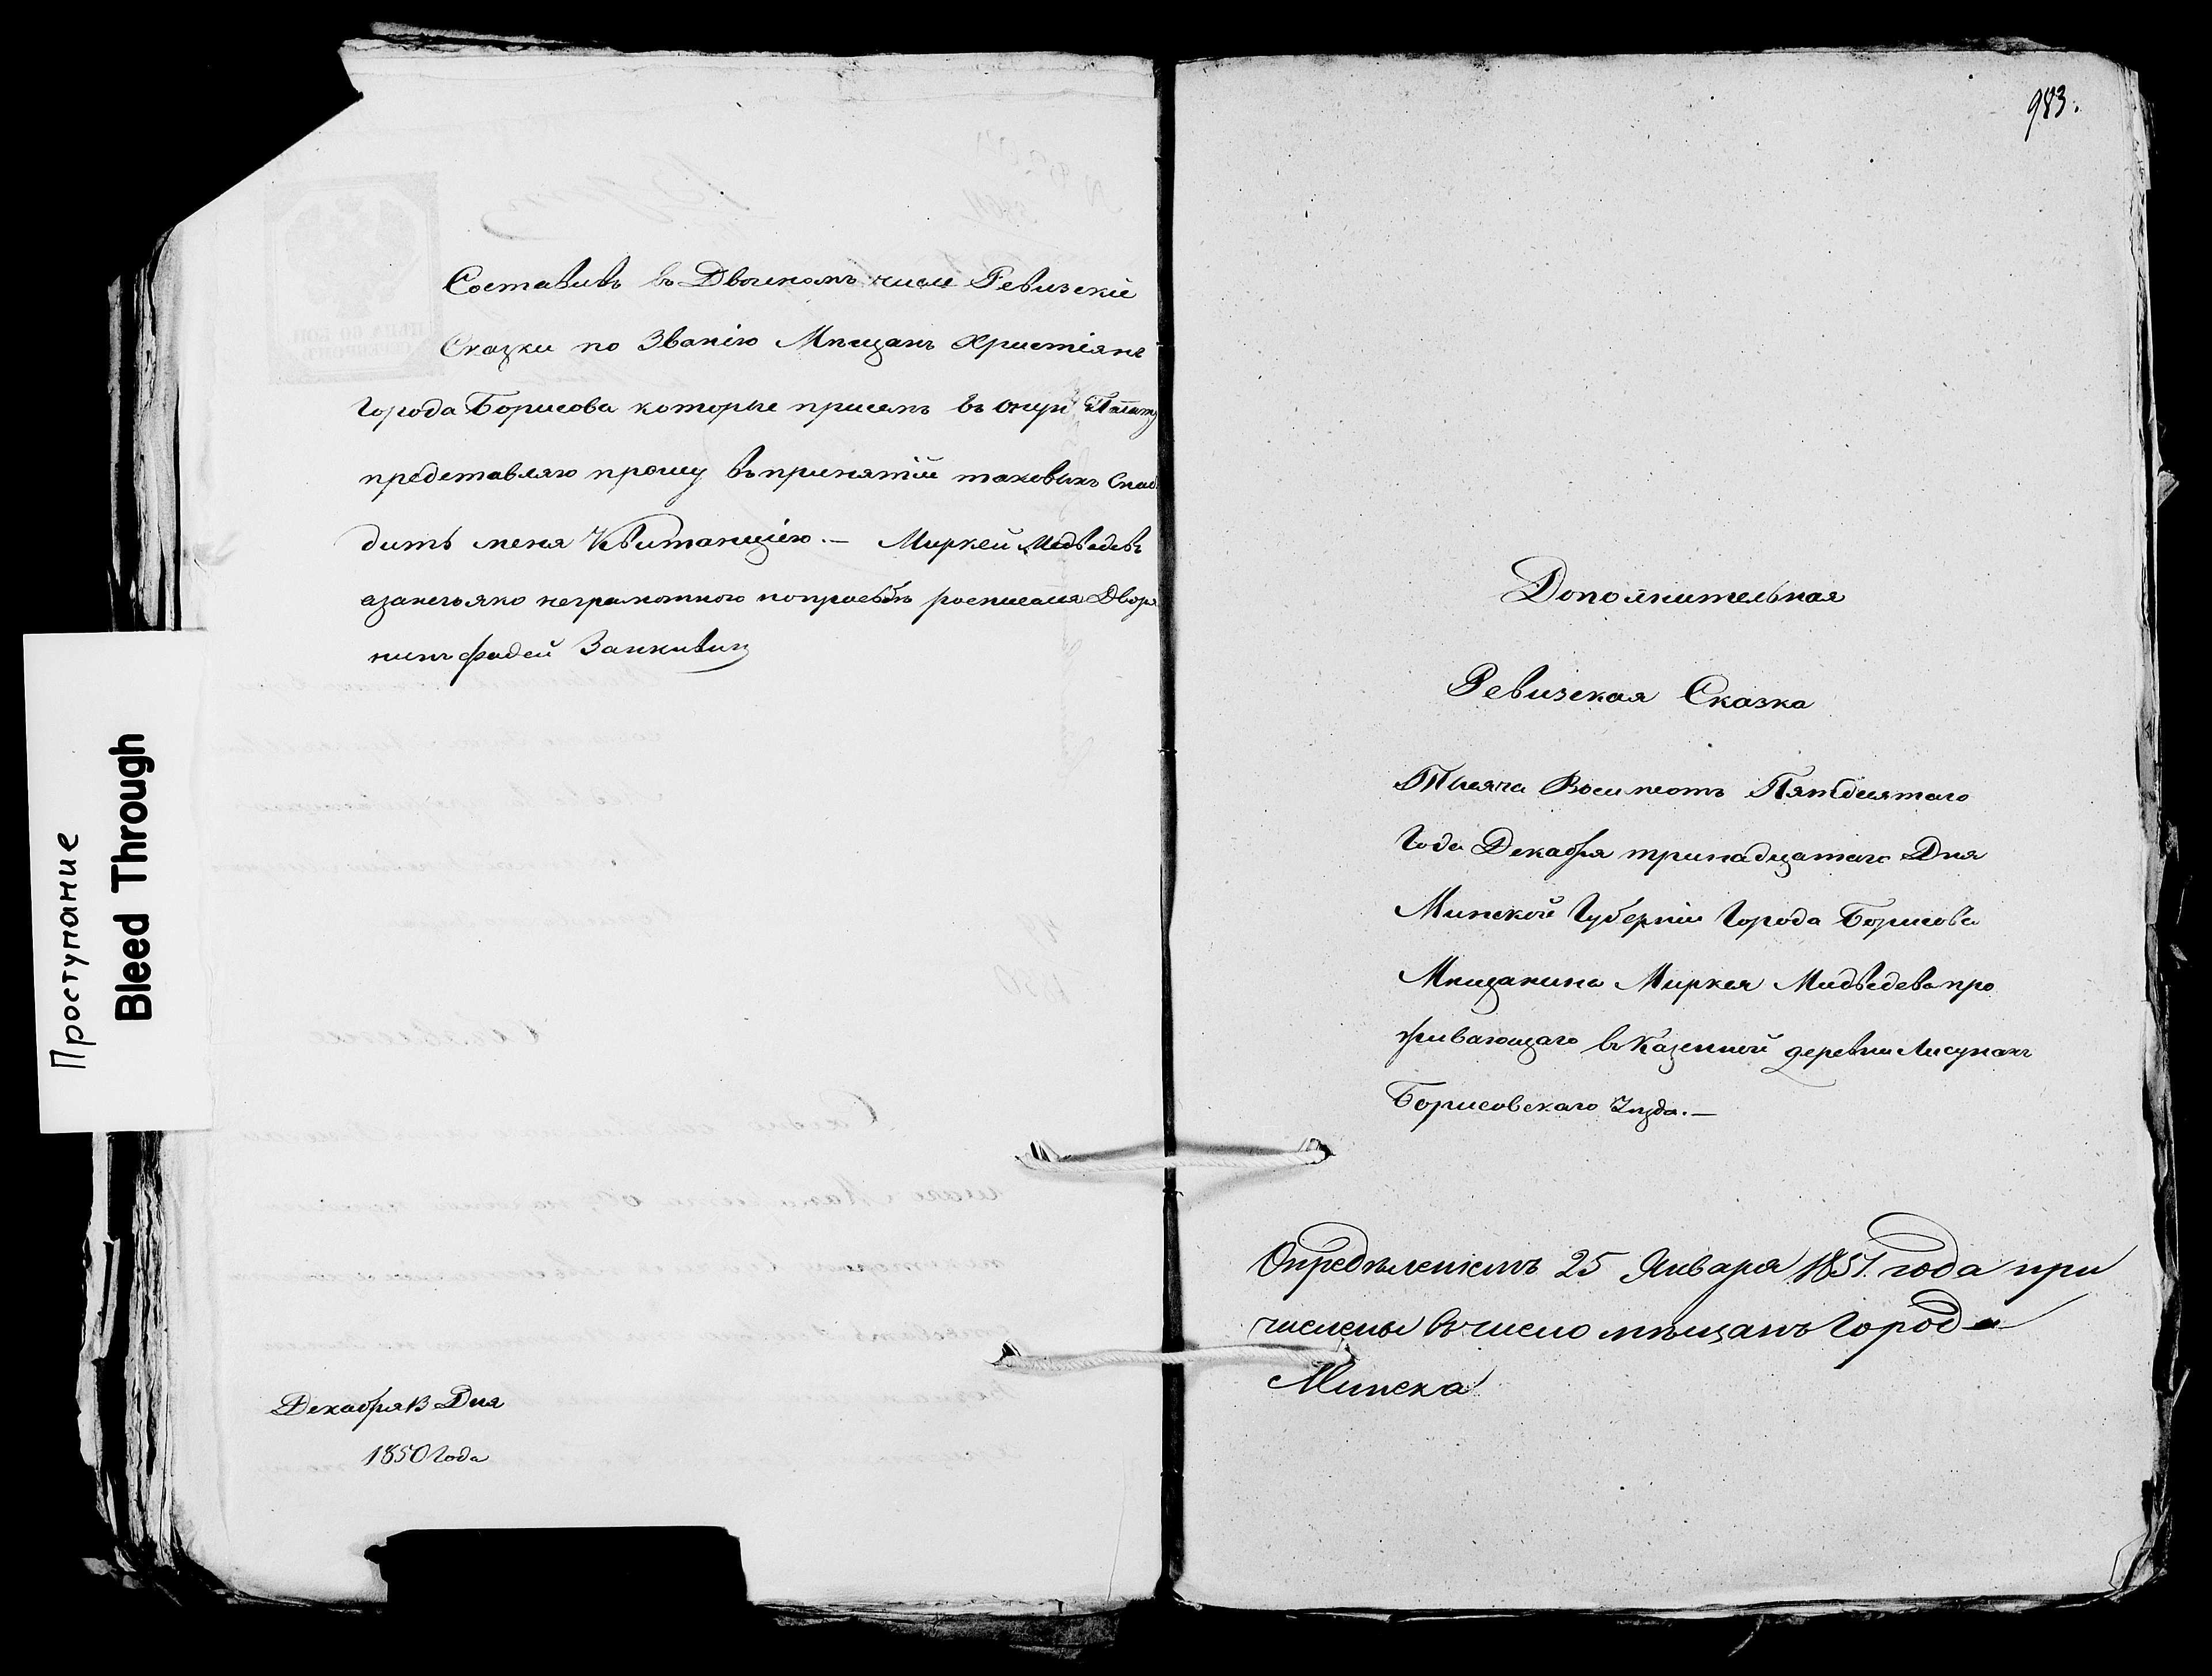 Составивъ во Двоиномъ числе Ревизскіе
Сказки по Званію Мѣщанъ Христіянъ
Города Борисова которые присемъ въ оную Палату
представляю прошу въ принятіи таковыхъ Снаб
дить меня Квитанціею.— Миркей Медведевъ
азанегояко неграмотного попросьбѣ росписался Дворя
нинъ Фадей
Декабря 13 Дня
1850 Года
Проступание
Bleed Through
983.
Дополнительная
Ревизская Сказка
Тысяча Восимсотъ Пятдисятаго
Года Декабря тринадцатаго Дня
Минской Губерніи Города Борисова
Мѣщанина Миркея Мидведева про
живающаго въ Казенной деревни Лисунахъ
Борисовскаго Уѣзда.—
Опредѣленіемъ 25 Января 1851 года при
числены въ число мѣщанъ Города
Минска